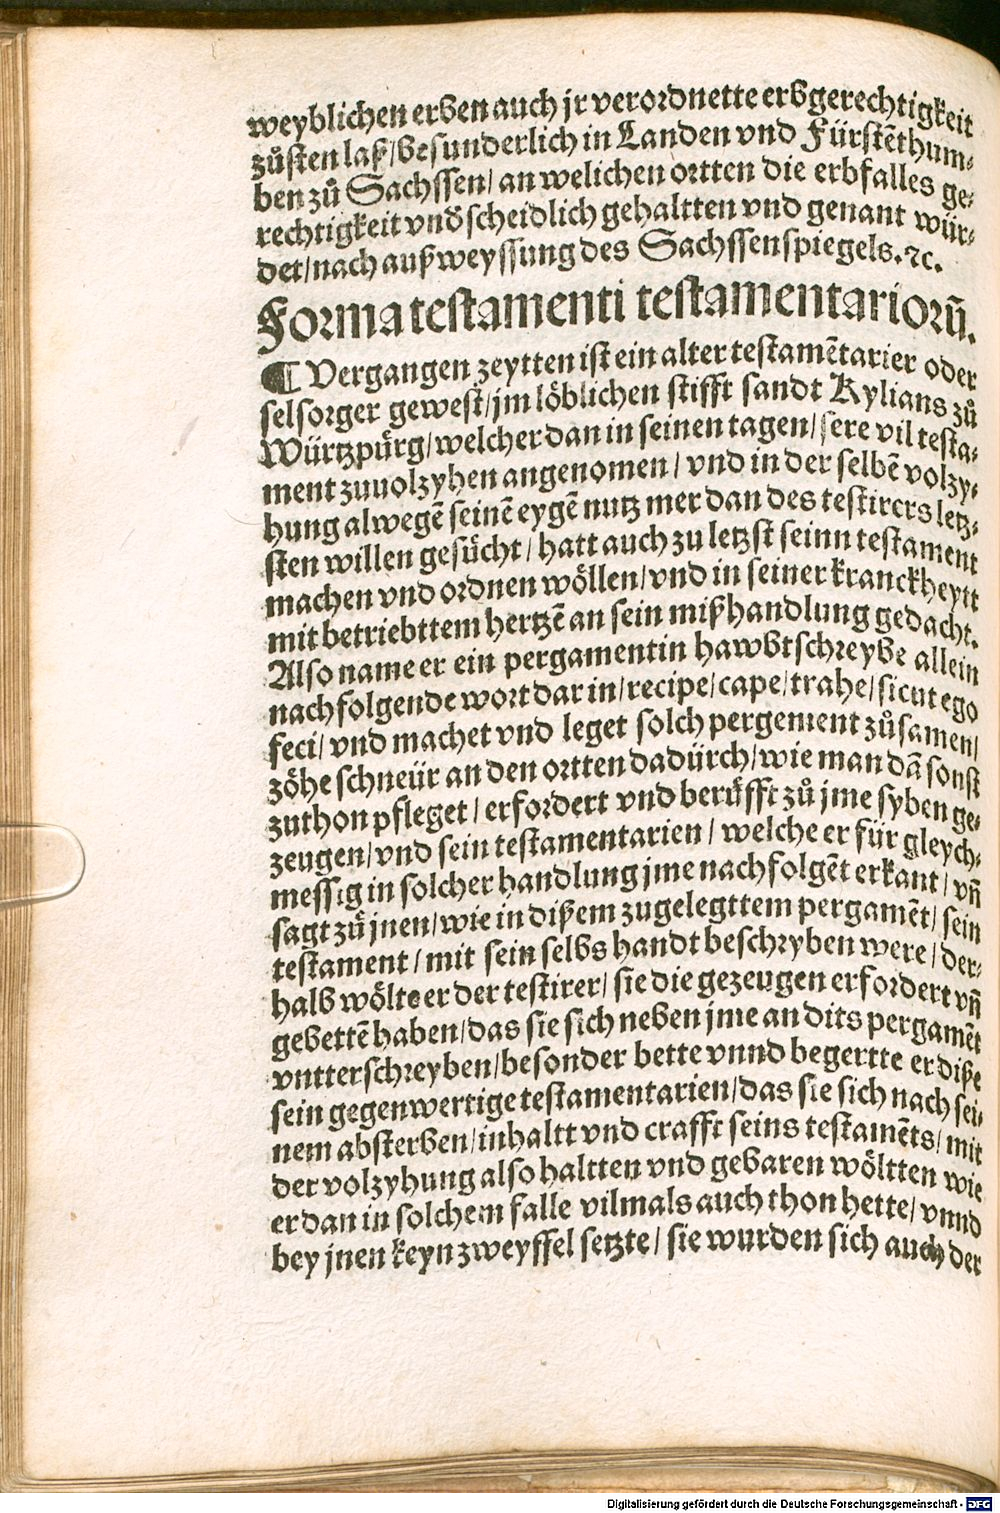 weyblichen erben auch jr verordnette erbgerechtigkeit
zůsten laß/besunderlich in Landen vnd Fürstēthum⸗
ben zů Sachssen/ an welichen ortten die erbfalles ge⸗
rechtigkeit vnd̄scheidlich gehaltten vnd genant wür⸗
det/nach außweyssung des Sachssenspiegels.⁊c.
Forma testamenti testamentariorū.
¶ Vergangen zeytten ist ein alter testamētarier oder
selsorger gewest/jm löblichen stifft sandt Kylians zů
Würtzpürg/welcher dan in seinen tagen/sere vil testa⸗
ment zuuolzyhen angenomen/ vnd in der selbē volzy⸗
hung alwegē seinē eygē nutz mer dan des testirers letz⸗
sten willen gesücht/ hatt auch zu letzst seinn testament
machen vnd ordnen wöllen/vnd in seiner kranckheytt
mit betriebttem hertzē an sein mißhandlung gedacht.
Also name er ein pergamentin hawbtschreybe allein
nachfolgende wort dar in/recipe/cape/trahe/sicut ego
feci/ vnd machet vnd leget solch pergement zůsamen/
zöhe schneür an den ortten dadürch/wie man dā sonst
zuthon pfleget/ erfordert vnd berüfft zů jme syben ge⸗
zeugen/vnd sein testamentarien/ welche er für gleych⸗
messig in solcher handlung jme nachfolgēt erkant/ vn̄
sagt zů jnen/wie in dißem zugelegttem pergamēt/ sein
testament/ mit sein selbs handt beschryben were/ der⸗
halb wölte er der testirer/ sie die gezeugen erfordert vn̄
gebettē haben/das sie sich neben jme an dits pergamēt
vntterschreyben/besonder bette vnnd begertte er diße
sein gegenwertige testamentarien/das sie sich nach sei⸗
nem absterben/inhaltt vnd crafft seins testamēts/ mit
der volzyhung also haltten vnd gebaren wöltten wie
er dan in solchem falle vilmals auch thon hette/ vnnd
bey jnen keyn zweyffel setzte/ sie wurden sich auch der
Digitalisierung gefördert durch die Deutsche Forschungsgemeinschaft - DFG